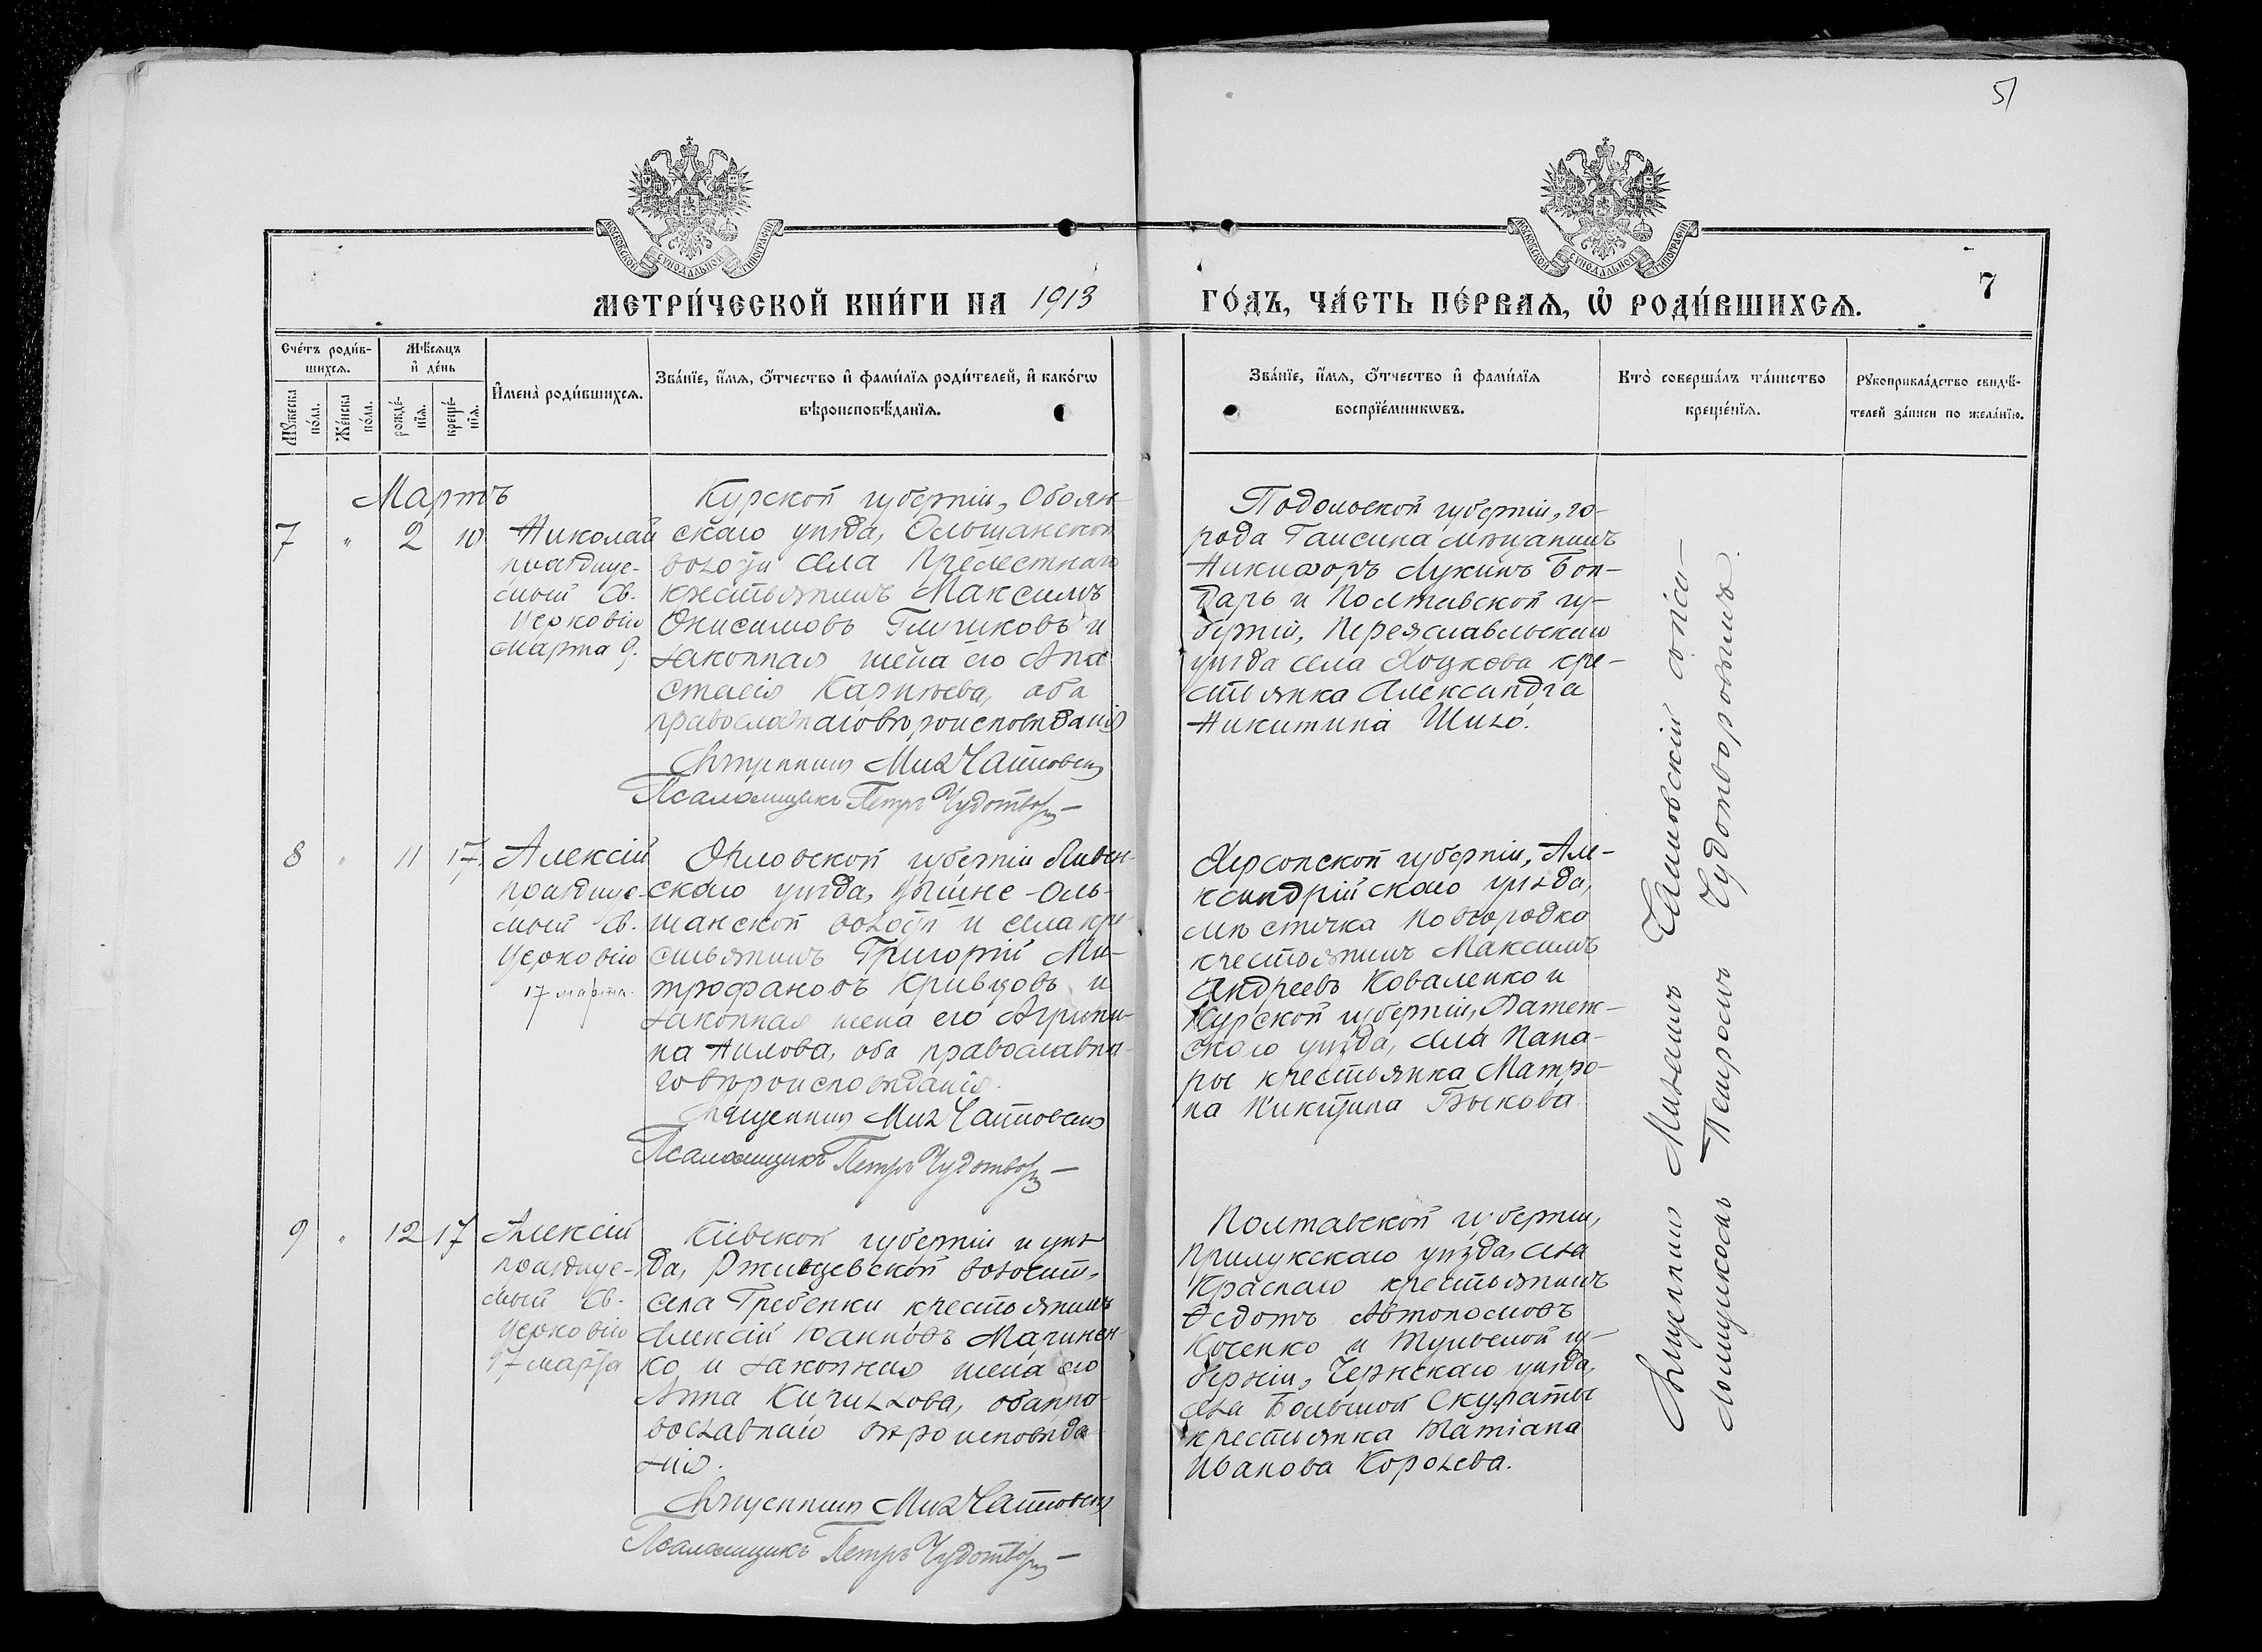 51
МОСКОВСКОЙ СѴНОДАЛЬНОЙ ТИПОГРАФІИ
МОСКОВСКОЙ СѴНОДАЛЬНОЙ ТИПОГРАФІИ
МЕТРИ́ЧЕСКОЙ КНИ́ГИ НА 1913
ГО́ДЪ, ЧА́СТЬ ПЕ́РВАѦ, Ѡ҆ РОДИ́ВШИХСѦ.
7
Сче́тъ роди́в-
шихсѧ.
Мѣ́сѧцъ
и҆ де́нь
Мꙋ́жеска
по́ла.
Же́нска
по́ла.
рожде́-
нїѧ.
креще́-
нїѧ.
И҆мена̀ роди́вшихсѧ.
Зва́нїе, и҆́мѧ, ѻ҆́тчество и҆ фами́лїѧ роди́телей, и҆ како́гѡ
вѣроисповѣ́данїѧ.
Зва́нїе, и҆́мѧ, ѻ҆́тчество и҆ фами́лїѧ
воспрїе́мникѡвъ.
Кто̀ соверша́лъ та́инство
креще́нїѧ.
Рꙋкоприкла́дство свидѣ́-
телей за́писи по жела́нїю.
Мартъ
7 " 2 10
Николай
празднуе-
мый Св.
Церковію
марта 9.
Курской губерніи, Обоян-
скаго уѣзда, Ольшанской
волости села Прелестнаго
крестьянинъ Максимъ
Онисимовъ Глушковъ и
законная жена его Ана
стасія Карнѣева, оба
православнаго вѣроисповѣданія
Священникъ Мих Чайковск
Псаломщикъ Петръ Чудотвор
Подольской губерніи, го-
рода Гайсина мѣщанинъ
Никифоръ Лукинъ Бон-
дарь и Полтавской гу-
берніи, Переяславльскаго
уѣзда села Хоцкова кре-
стьянка Александра
Никитина Шило.
8 " 11 17
Алексій
празднуе-
мый Св.
Церковію
17 марта.
Орловской губерніи Ливен-
скаго уѣзда, Вышне-Оль-
шанской волости и села кре
стьянинъ Григорій Ми-
трофановъ Кривцовъ и
законная жена его Агрипи-
на Аилова, оба православна-
го вѣроисповѣданія.
Священникъ Мих Чайковск
Псаломщикъ Петръ Чудотвор
Херсонской губерніи, Але-
ксандрійскаго уѣзда,
мѣстечка Новгородка
крестьянинъ Максимъ
Андреевъ Коваленко и
Курской губерніи, Фатеж-
скаго уѣзда, села Пана-
рое крестьянка Матро-
на Никитина Быкова.
9 " 12 17
Алексій
празднуе-
мый Св.
Церковію
17 марта
Кіевской губерніи и уѣз
да, Ржищевской волости,
села Гребенки крестьянинъ
Алексій Іоанновъ Мачинен-
ко и законная жена его
Анна Кириллова, оба пра-
вославнаго вѣроисповѣда-
нія.
Священникъ Мих Чайковск
Псаломщикъ Петръ Чудотвор
Полтавской губерніи,
Прилукскаго уѣзда, села
Краснаго крестьянинъ
Ѳедотъ Автономовъ
Косенко и Тульской гу-
берніи, Чернскаго уѣзда,
села Большой Скураты
крестьянка Татіана
Иванова Королева.
Священникъ Михаилъ
Псаломщикомъ Петромъ Чудотворовымъ